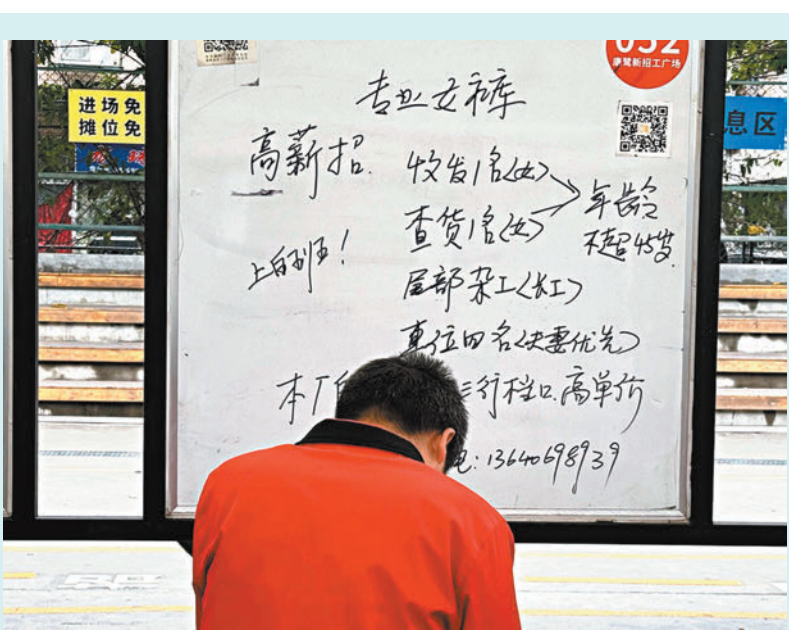 康鹭新招工广场
进场免
摊位免
息区
专业女裤
高薪招. 收发1名<女> 年龄
查货1名<女> 不超45岁
上白班!
尾部杂工<长工>
车位四名<夫妻优先>
本厂 行档口.高单价
电:13640698939